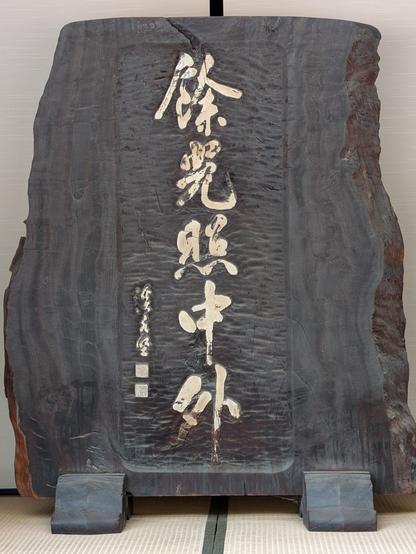 餘覺照中外